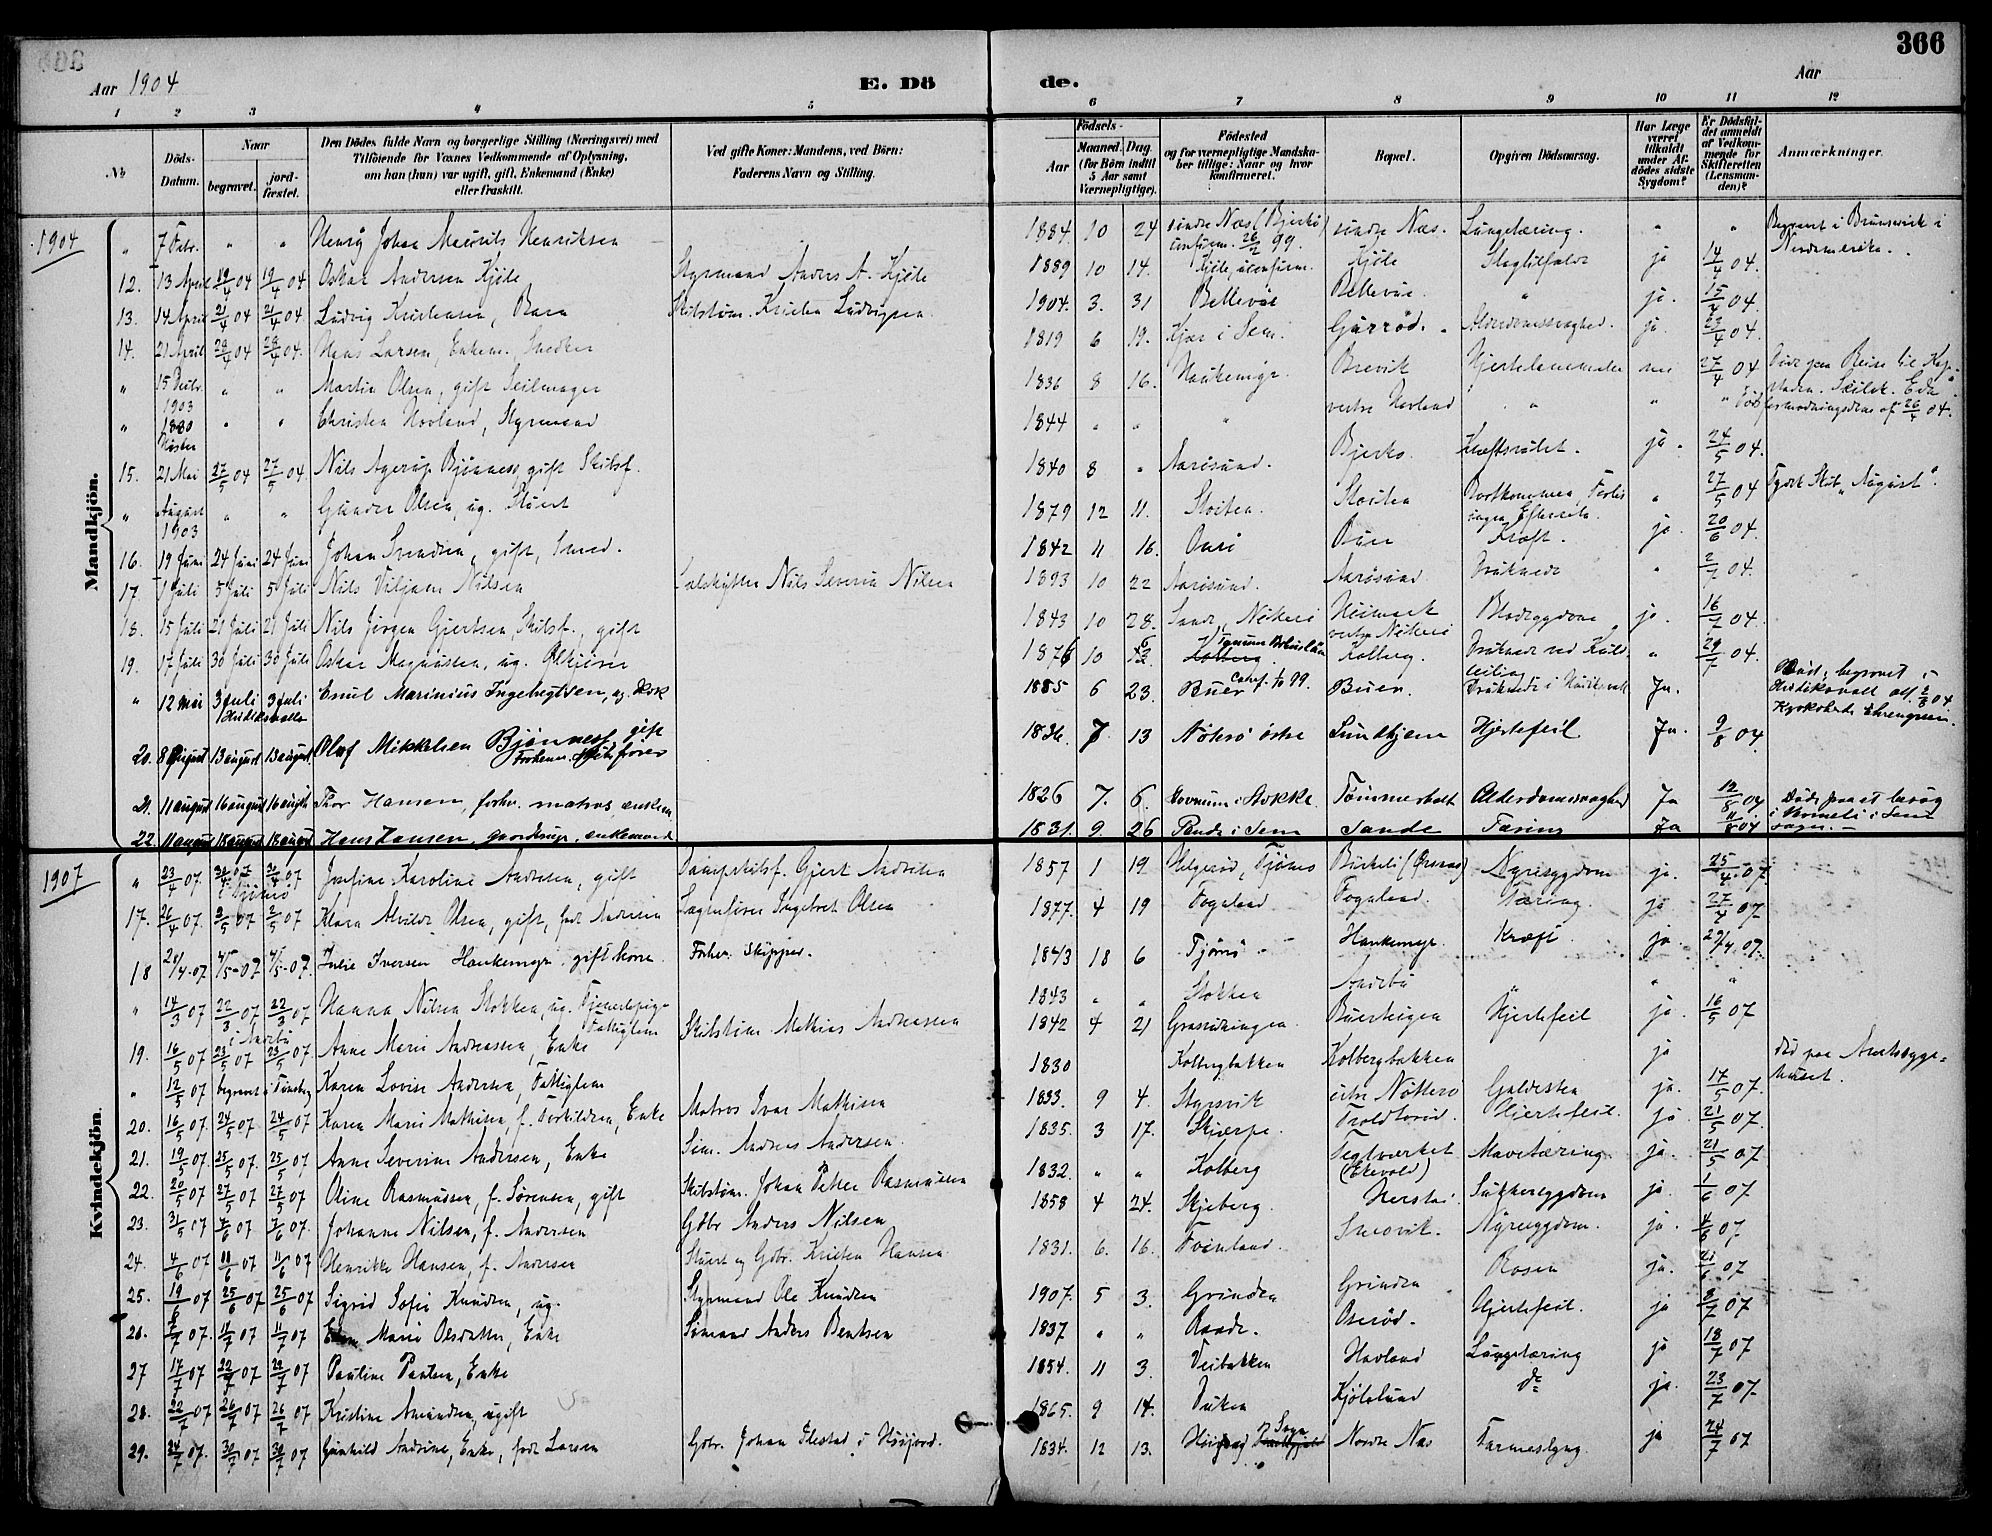 366
Aar 1904
E. Dö
de.
Aar
1 2 3 4 5 6 7 8 9 10 11 12
№
Döds-Datum.
Naar
begravet.
jordfæstet.
Den Dödes fulde Navn og borgerlige Stilling (Næringsvei) med
Tilföiende for Voxnes Vedkommende af Oplysning,
om han (hun) var ugift, gift, Enkemand (Enke)
eller fraskilt.
Ved gifte Koner: Mandens, ved Börn:
Faderens Navn og Stilling.
Födsels-
Aar
Maaned. Dag.
(for Börn indtil
5 Aar samt
Værnepligtige).
Födested
og for værnepligtige Mandskaber tillige: Naar og hvor
konfirmeret.
Bopæl.
Opgiven Dödsaarsag.
Har Læge
været
tilkaldt
under Afdödes sidste
Sygdom?
Er Dödsfaldet anmeldt
af Vedkommende for
Skifteretten
(Lensmanden)?
Anmærkninger.
Mandkjön.
1904
" 7 Febr. " " Henry Johan Mauritz Henriksen 1884 10 24 søndre Næs (Bjerkø) confirm. 26/2 99. søndre Næs. Lungetæring. " " Begravet i Brunswick i Nordamerika.
12. 13 April 19/4 04 19/4 04 Oskar Andersen Kjøle Styrmand Anders A. Kjøle 1889 10 14. Kjøle, uconfirm. Kjøle Slagtilfælde ja 14/4 04.
13. 14 April 21/4 04 21/4 04 Ludvig Kristensen, Barn Skibstøm. Kristen Ludvigsen 1904. 3. 31 Bellevue Bellevue. " ja. 15/4 04.
14. 21 April 28/4 04 28/4 04. Hans Larsen, Enkem., Snedker 1819 6 19. Kjær i Sem. Gårrød. Alderdomssvaghed. ja. 23/4 04.
" 15 Decbr. 1903 " " Martin Olsen, gift Seilmager 1836 8 16. Haukemyr. Brevik Hjertelammelse nei 27/4 04
" 1880 Høsten " " Christen Hovland, Styrmand 1844 " " " vestre Hovland " " "
15. 21 Mai 27/5 04 27/5 04 Nils Agerup Bjønness, gift Skibsf. 1840 8 " Aarøsund. Bjerkø. Kræftsvulst. ja. 24/5 04.
" August 1903 " " Gunder Olsen, ug. Stuert 1879 12 11. Stoiten. Stoiten Bortkommen, Forlis " 27/5 04 Tysk Skib "August".
16. 19 Juni 24 Juni 24 Juni Johan Svendsen, gift, Smed. 1842 11 16. Onsø Buer Kræft. ja. 20/6 04.
17. 1 Juli 5 Juli 5 Juli Nils Viljam Nilsen Sælskytter Nils Severin Nilsen 1893 10 22 Aarøsund. Aarøsund Druknede " 2/7 04.
18. 15 Juli 21 Juli 21 Juli Nils Jørgen Gjertsen, Skibsf., gift 1843 10 28. Sande, Nøterø vestre Nøterø Blodsygdom ja. 16/7 04.
19. 17 Juli 30 Juli 30 Juli Oskar Magnussen, ug. 1876 10 Kolberg. Kolberg. Druknede ved " 29/7 04.
" 12 mai 3 juli 3 juli Hudiksvalle Emil Marinius Ingebregtsen, ug. Kok 1885 6 23. Buer Buer. Druknede i Hudiksvall Ja.
20. 8 August 13 august 13 august Oluf Mikkelsen Bjønness gift Forhenv. Skibsfører 1836. 7 13 Nøterø østre Sundhjem Hjertefeil Ja. 9/8 04
21. 11 august 16 august 16 august Thor Hansen, forhv. matros, enkem. 1826 7. 6. i Stokke. Tømmerholt Alderdomssvaghed Ja 12/8 04 Døde paa et besøg i i Sem
22. 11 august 18 august 18 august Hans Hansen, gaardbrugr. enkemand 1831. 9. 26 i Sem Sande Tæring Ja 11/8 04
Kvindekjön.
1907
" 23/4 07. 26/4 07 i Tjømø 26/4 07 Josefine Karoline Andresen, gift Dampskibsf. Gjert Andresen 1857 1 19 Helgerød, Tjømø Birkeli (Ørsnes) Nyresygdom ja. 25/4 07.
17. 26/4 07. 2/5 07 2/5 07 Klara Alvilde Olsen, gift, født Andresen Sagmfører Ingebret Olsen 1877. 4 19 Fogaland Fogaland. Tæring. ja 27/4 07
18 28/4-07. 4/5-07 4/5-07. Julie Iversen Haukemyr gift kone Forhen. skipper. 1843 18 6 Tjømø Haukemyr. Kræft. ja. 29/4.07.
" 14/3 07 22/3 07 i Andebu 22/3 07 Hanna Nilsen Stokken, ug. Tjenestepige Fattiglem 1843 " " Stokken Andebu " " "
19. 16/5 07 23/5 07 23/5 07. Anne Marie Andreassen, Enke Skibstøm. Mathias Andreassen 1842 4 21 Buerheigen Hjertefeil ja. 16/5 07
" 12/5 07 begravet i Tønsberg Karen Lovise Andersen, Fattiglem 1830 Kolbergbakken Kolbergbakken ja død paa Amtssygehuset.
20. 16/5 07. 24/5 07 24/5 07 Karen Marie Mathisen, f. Torkildsen, Enke Matros Ivar Mathisen 1833. 9 4. Styrsvik østre Nøtterø Galdesten ja. 17/5 07.
21. 19/5 07. 25/5 07. 25/5 07 Anne Severine Andersen, Enke Søm. Anders Andersen. 1835. 3 17. Skjærpe. Hjertefeil. ja 21/5 07.
22. 20/5 07 27/5 07 27/5 07 Oline Rasmussen, f. Sørensen, gift Skibstøm. Johan Petter Rasmussen 1832. " " Kolberg Teglværket (Ekevold) Mavetæring ja. 21/5 07
23. 31/5 07 7/6 07 7/6 07. Johanne Nilsen, f. Andersen Gdbr. Anders Nilsen 1858 4 24. Skjeberg. Herstad. Sukkersygdom ja. 1/6 07
24. 4/6 07 11/6 07 11/6 07 Henrikke Hansen, f. Andersen Stuert og Gdbr. Kristen Hansen 1831. 6. 16. Smovik. Nyresygdom. ja. 4/6 07
25. 19/6 07 25/6 07 25/6 07 Sigrid Sofie Knudsen, ug. Styrmand Ole Knudsen 1907. 5 3. Grinden Grinden Rosen ja. 21/6 07
26. 6/7 07. 11/7 07 11/7 07 Marie Olsdatter, Enke Sømand Anders Bentsen 1837 " " Raade. Oserød. Hjertefeil. ja 8/7 07
27 17/7 07 22/7 07 22/7 07 Pauline Paulsen, Enke 1854. 11 3. Veibakken Havland Lungetæring ja 18/7 07
28. 22/7 07 26/7 07 26/7 07 Kristine Amundsen, ugift 1865. 9 14. Duken Kjølelund do ja. 23/7 07.
29. 24/7 07. 30/7 07 30/7 07 Gunhild Andrine, Enke, født Larsen Gdbr. Johan Flestad i Høijord. 1834. 12 13. Nordre Næs Tarmeslyng. ja 24/7 07